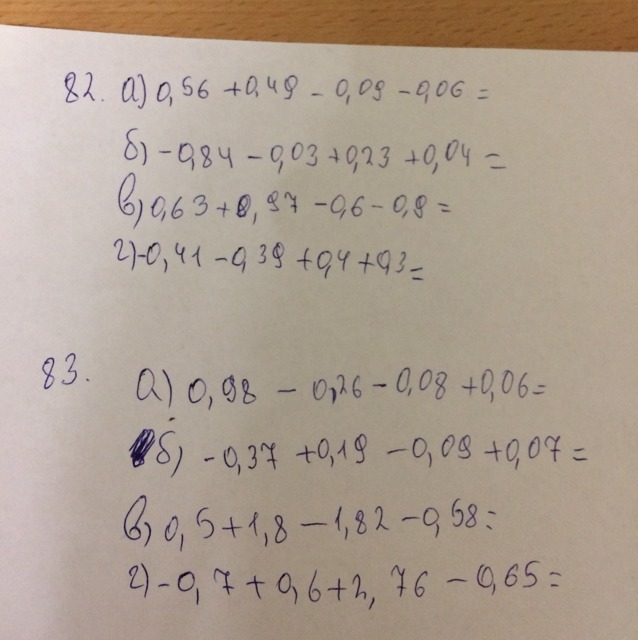 82. а) 0,56 + 0,49 - 0,09 - 0,06 =
б) - 0,84 - 0,03 + 0,23 + 0,04 =
в) 0,63 + 0,97 - 0,6 - 0,9 =
г) - 0,41 - 0,39 + 0,4 + 0,3 =
83. а) 0,98 - 0,26 - 0,08 + 0,06 =
б) - 0,37 + 0,19 - 0,09 + 0,07 =
в) 0,5 + 1,8 - 1,82 - 0,58 =
г) - 0,7 + 0,6 + 2,76 - 0,65 =